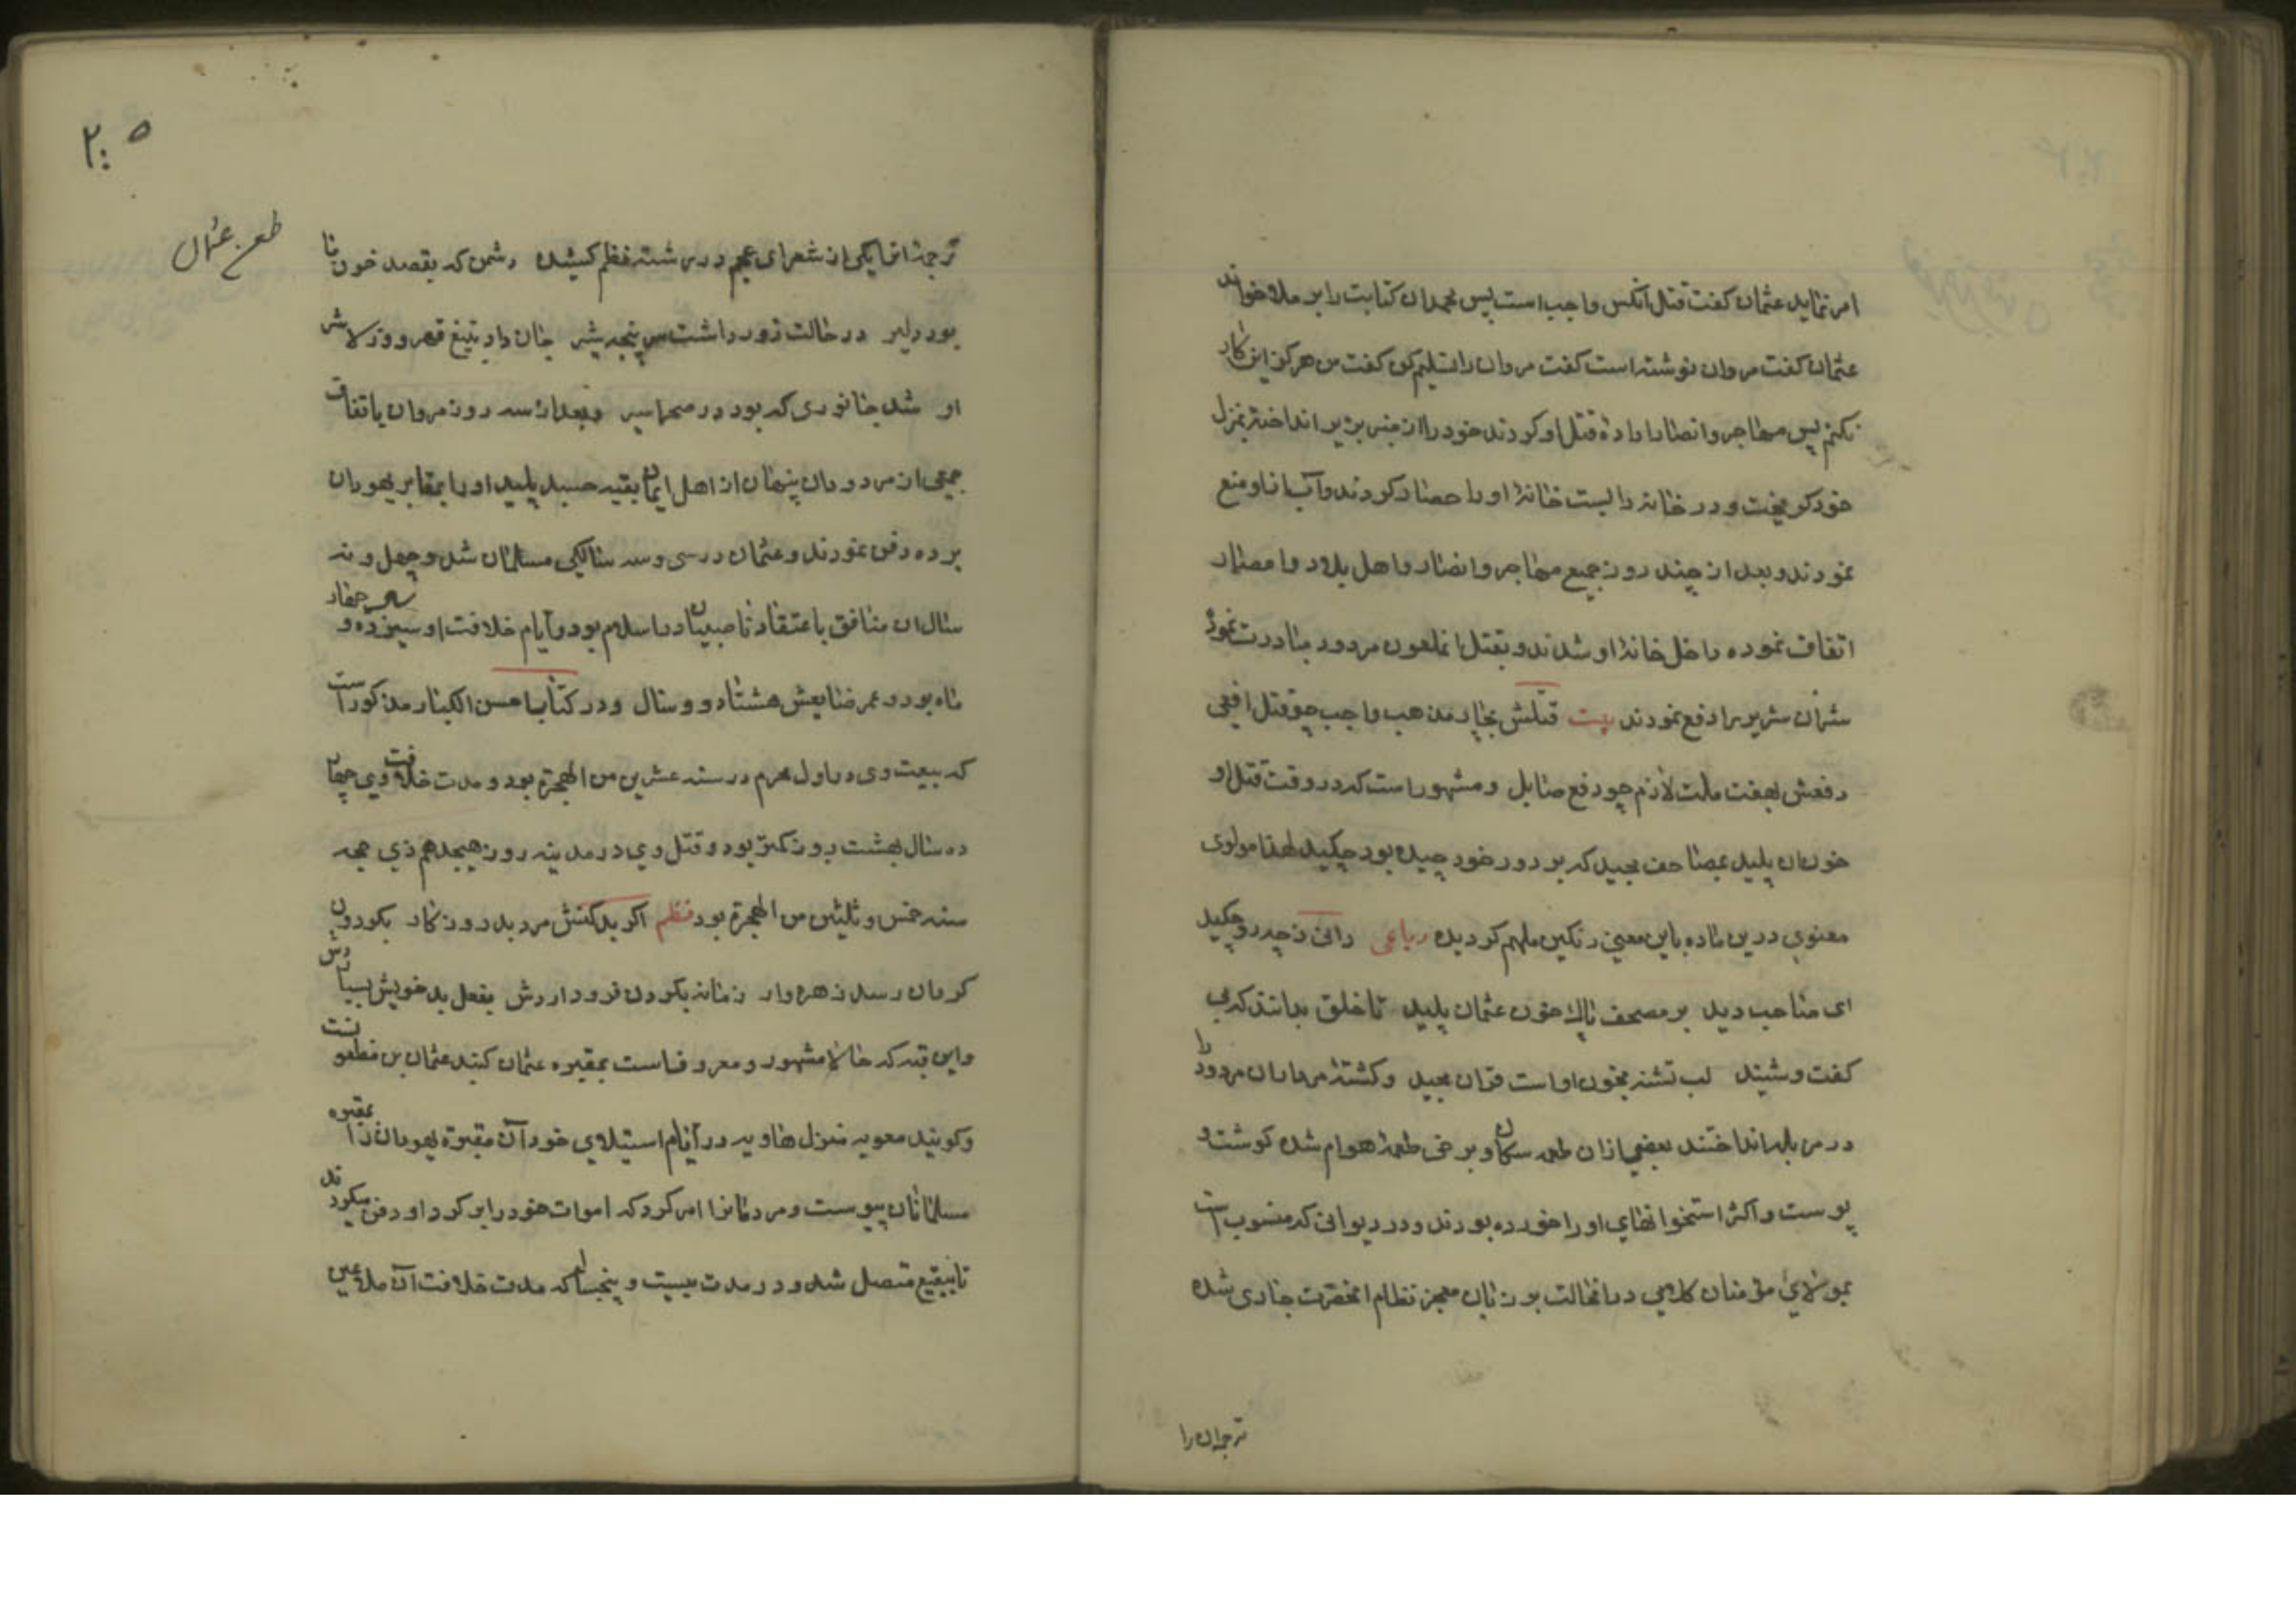 امر نماید عثمان کفت قتل انکس واجب است پس محمد ان کتابت را بر ملا خواند
عثمان کفت مروان نوشته است کفت مروان را تسلیم کن کفت من هرکز این کار
نکنم پس مهاجر وانصار اراده قتل او کردند خود را از منبر بزیر انداخته بمنزل
خود کریخت و در خانه را بست خانهٔ او را حصار کردند وآب از او منع
نمودند و بعد از چند روز جمیع مهاجر و انصار و اهل بلاد و امصار
اتفاق نموده داخل خانهٔ او شدند و بقتل انملعون مردود مبادرت نموده
شر ان شریر را دفع نمودند بیت قتلش بچار مذهب واجب چو قتل افعی
دفعش بهفت ملت لازم چو دفع صایل ومشهور است که در وقت قتل او
خون ان پلید بمصاحف مجید که بر دور خود چیده بود چکید لهذا مولوی
معنوی درین ماده باین معنی رنکین ملهم کردیده رباعی دانی ز چه رو چکید
ای صاحب دید بر مصحف پاک خون عثمان پلید تا خلق بدانند که بی
کفت وشنید لب تشنه بخون او است قران مجید وکشتهٔ مرداران مردود را
در مزبله انداختند بعضی ازان طعمه سکان و برخی طعمهٔ هوام شده کوشت و
پوست واکثر استخوانهای او را خورده بودند و در دیوانی که منسوب است
بمولای مؤمنان کلامی در انحالت بر زبان معجز نظام انحضرت جاری شده
ترجمه ان را
۲۰۵
طعن عثمان
ترجمه انرا یکی از شعرای عجم در رشته نظم کشیده دشمن که بقصد خون ما
بود دلیر در حالت زور داشت سرپنجه شیر جان داد بتیغ قهر و وز لاشهٔ
او شد جانوری که بود در صحرا سیر وبعد از سه روز مروان باتفاق
جمعی از مردودان پنهان از اهل ایمان بقیه جسد پلید او را بمقابر یهودان
برده دفن نمودند وعثمان در سی و سه سالکی مسلمان شد وچهل و نه
سال ان منافق باعتقاد ناصبیان در اسلام بود وایام خلافت او سیزده و
ماه بود و عمر ضایعش هشتاد و دو سال ودر کتاب احسن الکبار مذکور است
که بیعت وی در اول محرم در سنه عشرین من الهجرة بود و مدت خلافت وی چهار
ده سال بهشت روز کمتر بود و قتل وی در مدینه روز هیجدهم ذی حجه
سنه خمس و ثلثین من الهجرة بود نظم اکر بد کنش مرد بد روزکار بکردون
کردان رسد زهره وار زمانه بکردن فرود اردش بفعل بد خویش بسپاردش
واین قبه که حالا مشهور ومعروف است بمقبره عثمان کنبد عثمان بن مظعونست
وکویند معویه منزل هاویه در ایام استیلای خود آن مقبرهٔ یهودان را بمقبره
مسلمانان پیوست ومردمانرا امر کرد که اموات خود را بر کرد او دفن میکردند
تا ببقیع متصل شد و در مدت بیست و پنجسال که مدت خلافت آن ملاعین